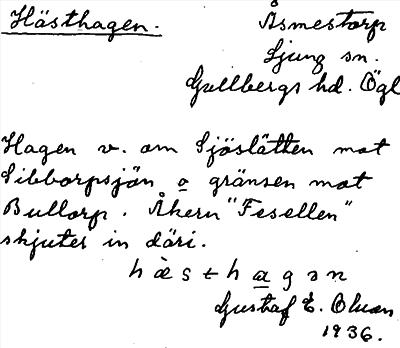 Hästhagen. Åsmestorp
Ljung sn.
Gullbergs hd. Ögl
Hagen v. om Sjöslätten mot
Sibborpsjön o gränsen mot
Bullorp. Åkern "Fesellen"
skjuter in däri.
h ὰ s t h a g ə n
Gustaf E. Olson
1936.